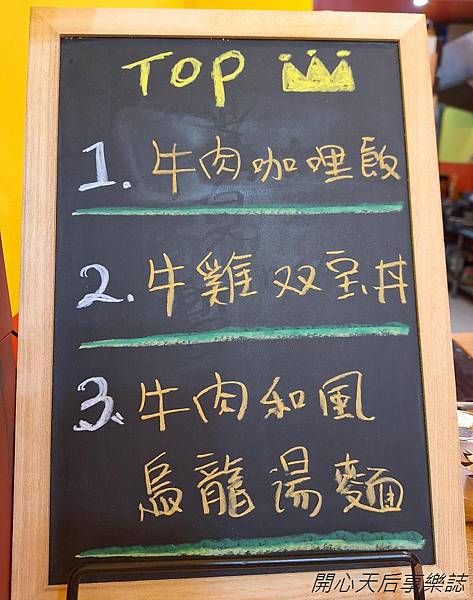 TOP
1. 牛肉咖哩飯
2. 牛雞双宝丼
3. 牛肉和風
烏龍湯麵
開心天后享樂誌